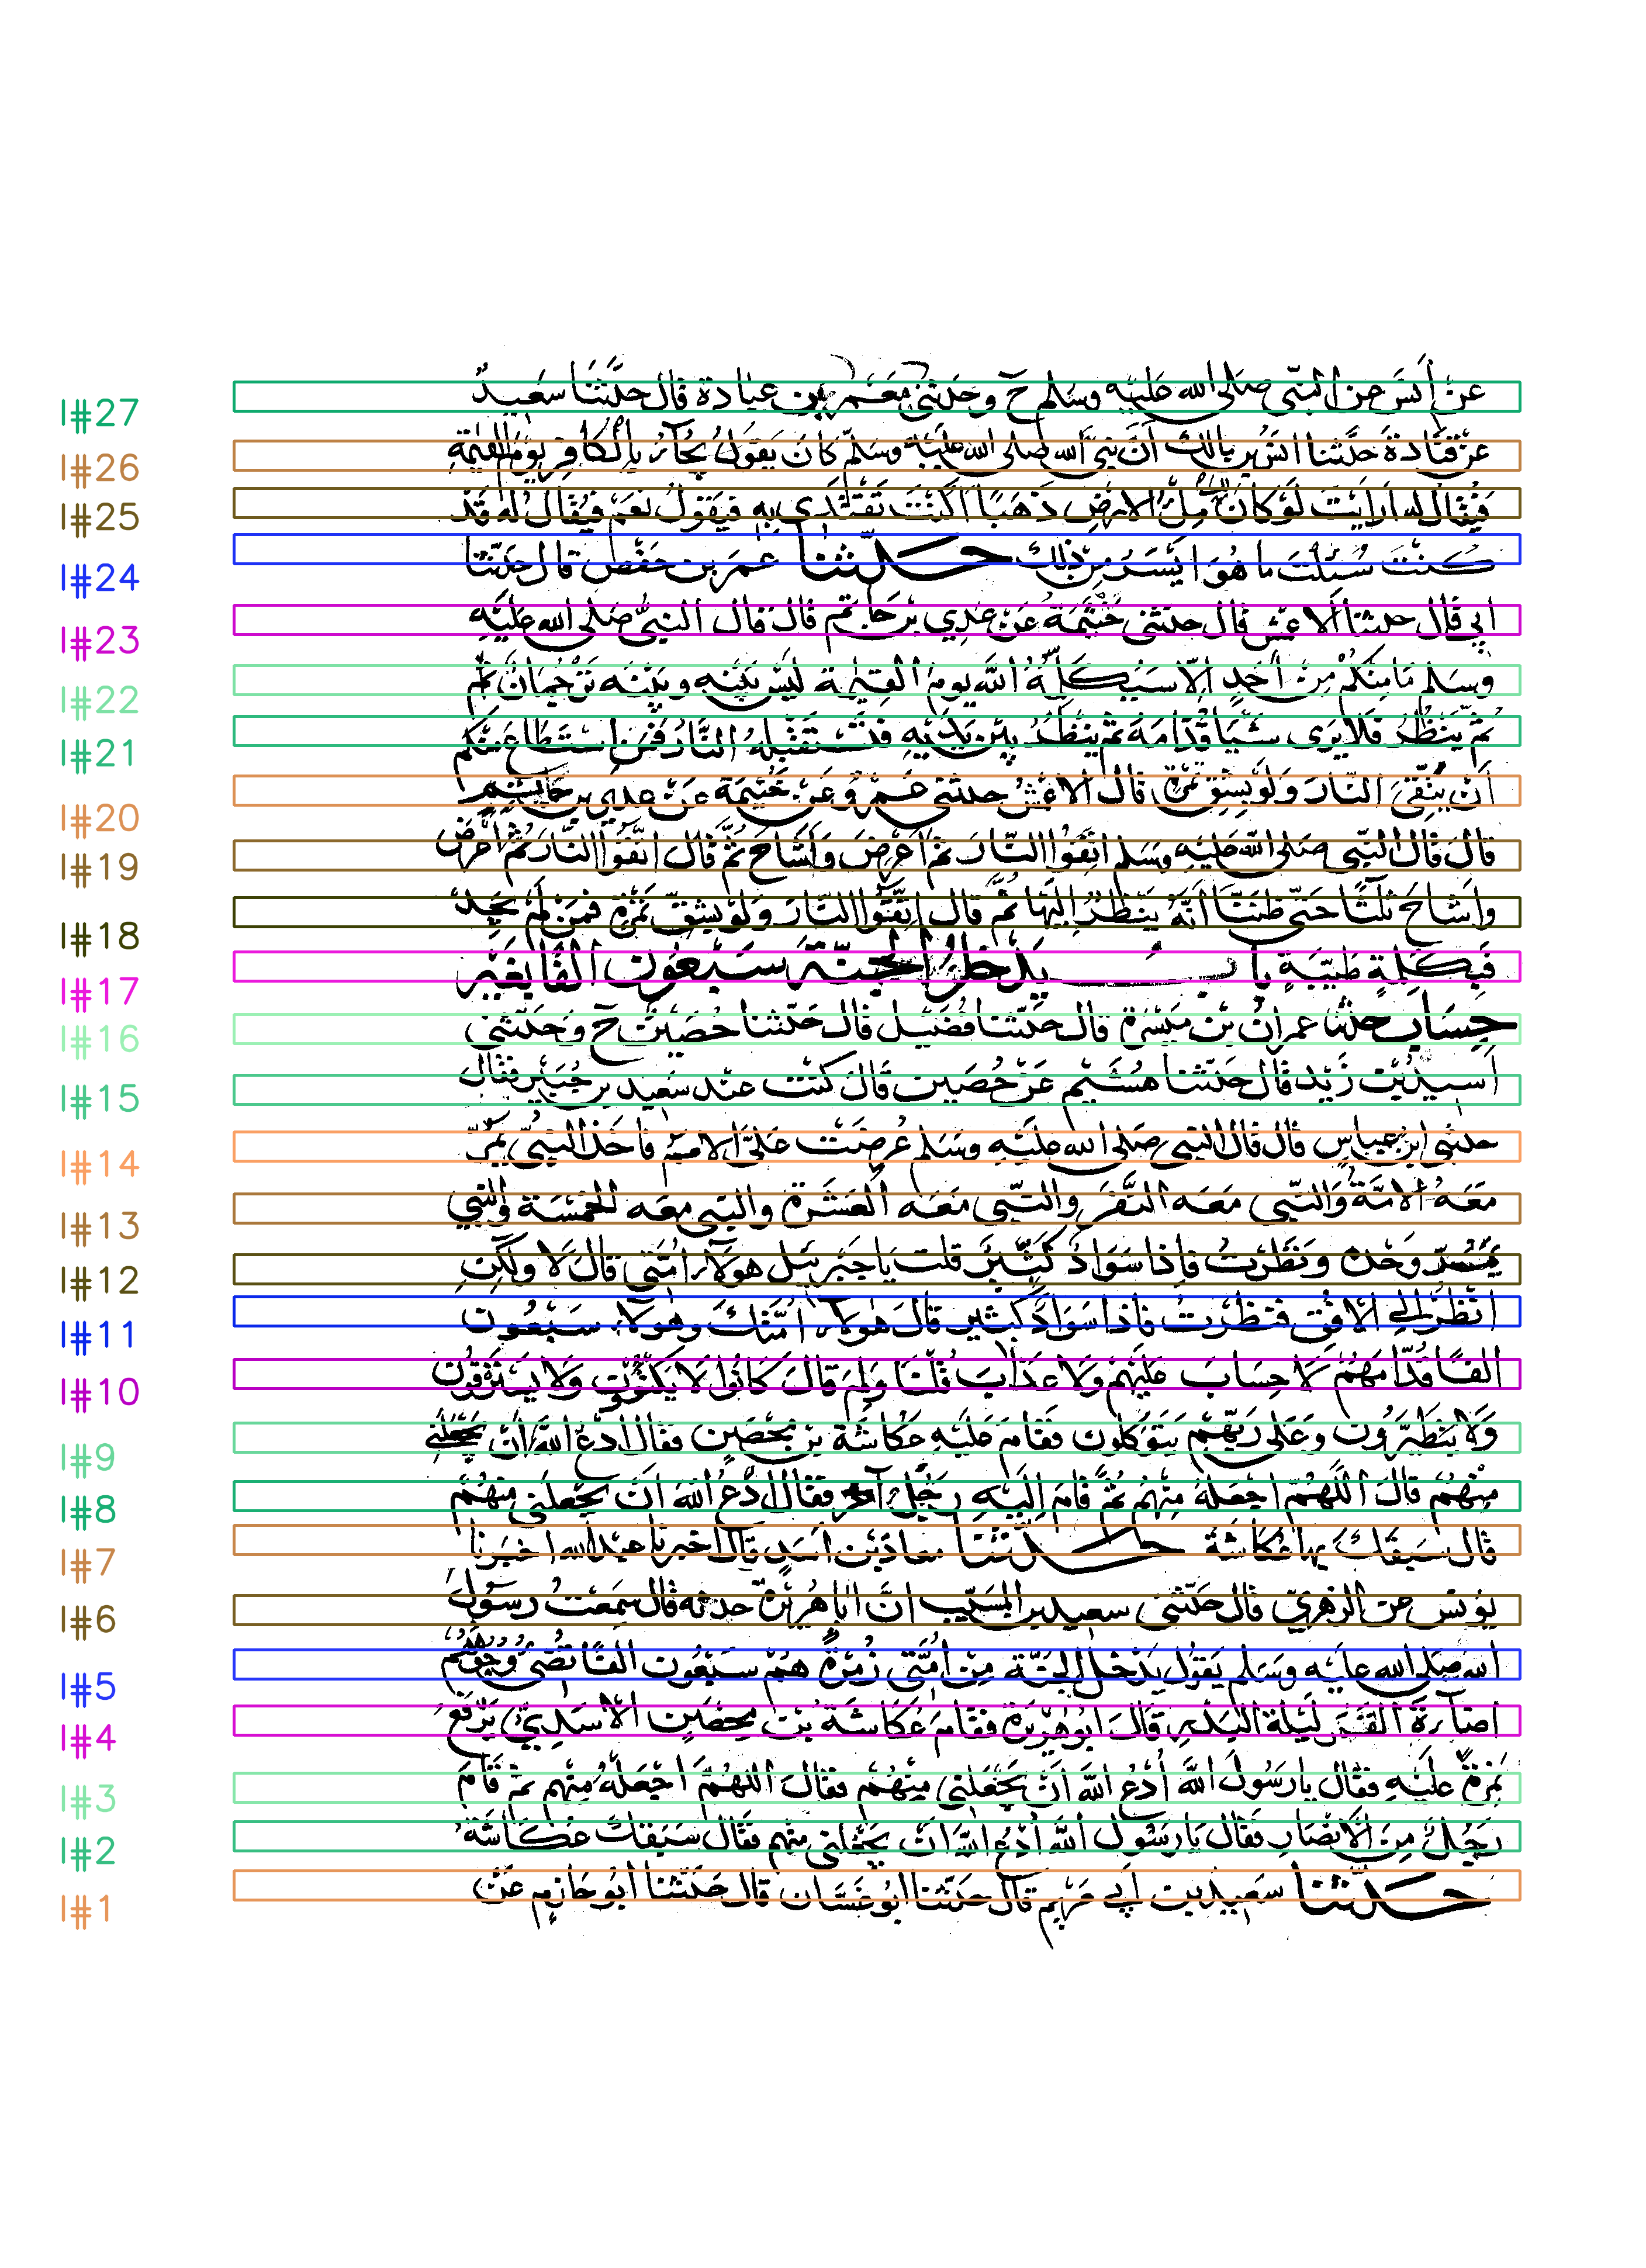 I#27 عن أنس عن النبي صلى الله عليه وسلم ح وحدثني معمر بن عبادة قال حدثنا سعيد
I#26 عن قتادة حدثنا انس بن مالك أن نبي الله صلى الله عليه وسلم كان يقول يجاء بالكافر يوم القيمة
I#25 فيقال له ارايت لو كان لك مل الارض ذهبا اكنت تفتدي به فيقول نعم فيقال له قد
I#24 كنت سئلت ما هو ايسر من ذلك حدثنا عمر بن حفص قال حدثنا
I#23 ابي قال حدثنا الاعمش قال حدثني خيثمة عن عدي بن حاتم قال قال النبي صلى الله عليه
I#22 وسلم ما منكم من أحد الا سيكلمه الله يوم القيمة ليس بينه وبينه ترجمان ثم
I#21 ثم ينظر فلا يرى شيأ قدامه ثم ينظر بين يديه فتستقبله النار فمن استطاع منكم
I#20 أن يتقي النار ولو بشق تمرة قال الاعمش حدثني عمرو عن خيثمة عن عدي بن حاتم
I#19 قال قال النبي صلى الله عليه وسلم اتقوا النار ثم اعرض واشاح ثم قال اتقوا النار ثم اعرض
I#18 واشاح ثلثا حتى ظننا أنه ينظر اليها ثم قال اتقوا النار ولو بشق تمرة فمن لم يجد
I#17 فبكلمة طيبة باب يدخل الجنة سبعون الفا بغير
I#16 حساب حدثنا عمران بن ميسرة قال حدثنا فضيل قال حدثنا حصين ح وحدثني
I#15 اسيد بن زيد قال حدثنا هشيم عن حصين قال كنت عند سعيد بن جبير فقال
I#14 حدثني ابن عباس قال قال النبي صلى الله عليه وسلم عرضت علي الامم فاخذ النبي يمر
I#13 معه الامة والنبي معه النفر والنبي معه العشرة والنبي معه الخمسة والنبي
I#12 يمر وحده ونظرت فاذا سواد كثير قلت يا جبريل هولاء امتي قال لا ولكن
I#11 انظر الى الافق فنظرت فاذا سواد كثير قال هولاء امتك وهولاء سبعون
I#10 الفا قدامهم لا حساب عليهم ولا عذاب قلت ولم قال كانوا لا يكتوون ولا يسترقون
I#9 ولا يتطيرون وعلى ربهم يتوكلون فقام عليه عكاشة بن محصن فقال ادع الله ان يجعلني
I#8 منهم قال اللهم اجعله منهم ثم قام اليه رجل آخر فقال ادع الله ان يجعلني منهم
I#7 قال سبقك بها عكاشة حدثنا معاذ بن اسد قال اخبرنا عبد الله اخبرنا
I#6 يونس عن الزهري قال حدثني سعيد بن المسيب ان ابا هريرة حدثه قال سمعت رسول
I#5 الله صلى الله عليه وسلم يقول يدخل الجنة من امتي زمرة هم سبعون الفا تضئ وجوههم
I#4 اضآءة القمر ليلة البدر قال ابو هريرة فقام عكاشة بن محصن الاسدي يرفع
I#3 نمرة عليه فقال يا رسول الله أدع الله ان يجعلني منهم فقال اللهم اجعله منهم ثم قام
I#2 رجل من الانصار فقال يا رسول الله أدع الله ان يجعلني منهم فقال سبقك عكاشة
I#1 حدثنا سعيد بن ابي مريم قال حدثنا ابو غسان قال حدثنا ابو حازم عن